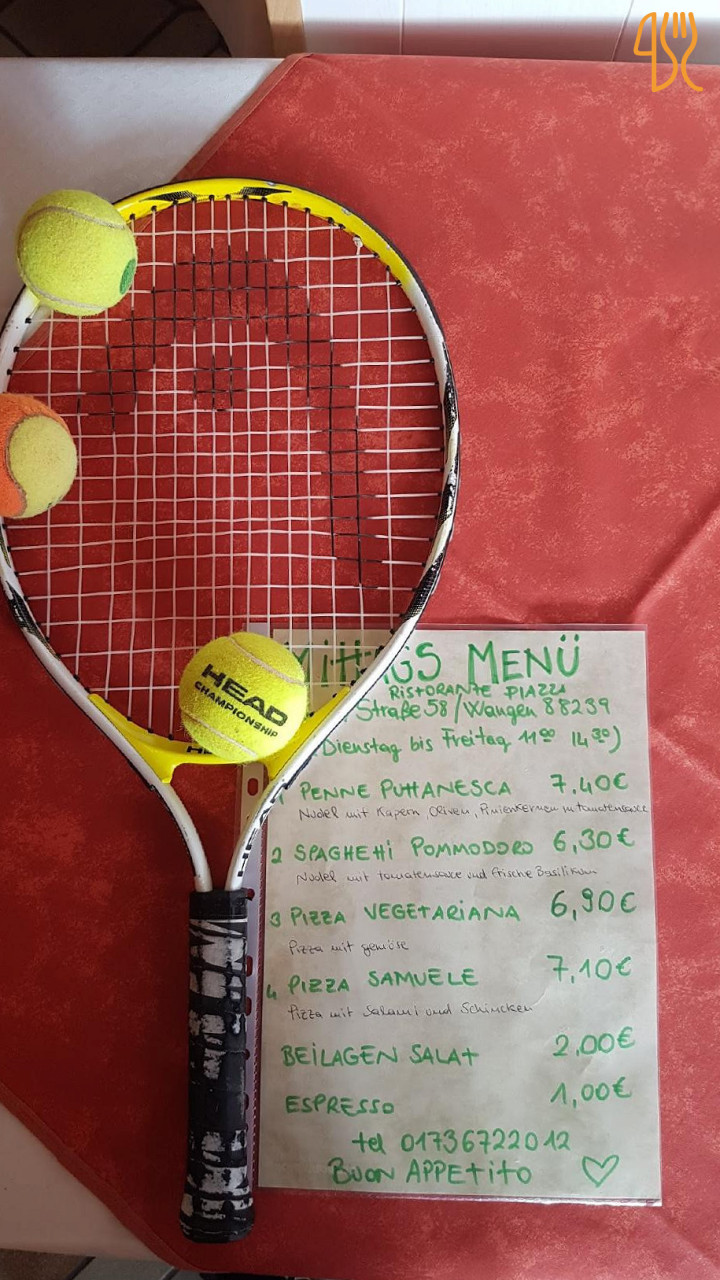 HEAD
CHAMPIONSHIP
MENÜ
RISTORANTE PIAZZA
Straße 58/Wangen 88239
Dienstag bis Freitag 11⁰⁰ 14³⁰)
1 PENNE PUttANESCA 7,40€
Nudel mit Kapern, Oliven, Pinienkernen in tomatensauce
2 SPAGHEttI POMMODORO 6,30€
Nudel mit tomatensauce und frische Basilikum
3 PIZZA VEGETARIANA 6,90€
Pizza mit gemüse
4 PIZZA SAMUELE 7,10€
Pizza mit Salami und Schincken
BEILAGEN SALAt 2,00€
ESPRESSO 1,00€
tel 01736722012
BUON APPEtito